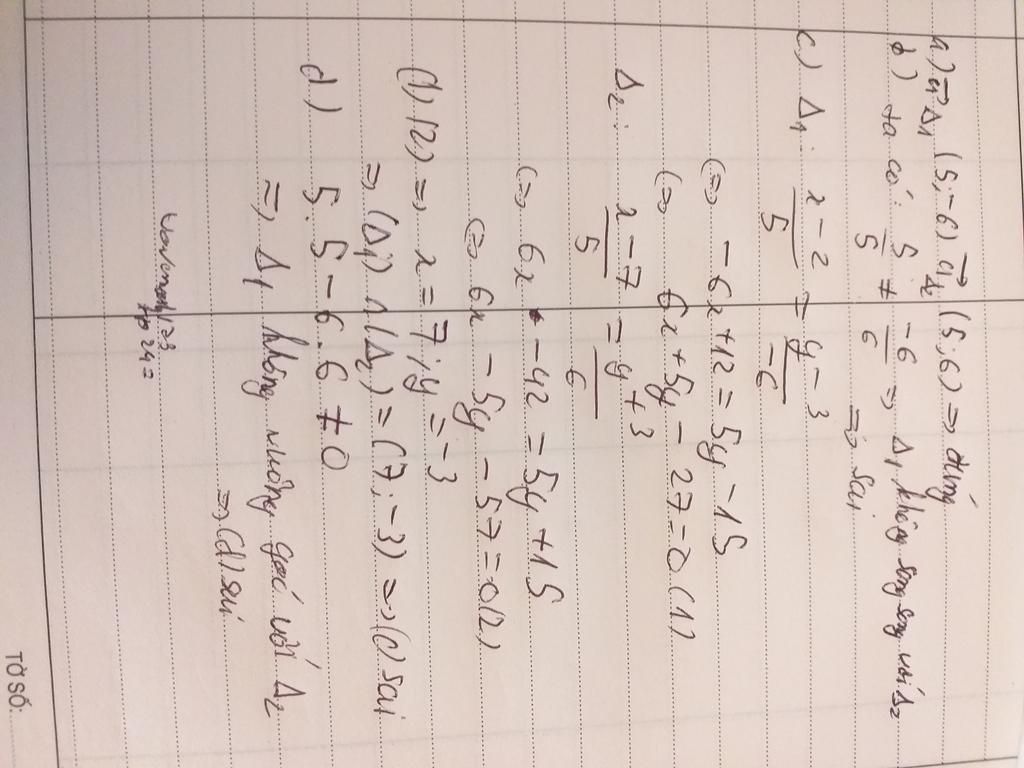 a) u⃗Δ₁ (5;-6) u⃗Δ₂ (5;6) => đúng
b) ta có: 5/5 ≠ -6/6 => Δ₁ không song song với Δ₂
=> Sai
c) Δ₁: (x-2)/5 = (y-3)/-6
<=> -6x+12 = 5y-15
<=> 6x+5y-27=0 (1)
Δ₂: (x-7)/5 = (y+3)/6
<=> 6x -42 = 5y+15
<=> 6x -5y -57=0 (2)
(1) (2) => x=7; y=-3
=> (Δ₁) ∩ (Δ₂) = (7;-3) => (c) sai
d) 5.5-6.6 ≠ 0
=> Δ₁ không vuông góc với Δ₂
=> (d) sai
TỜ SỐ: